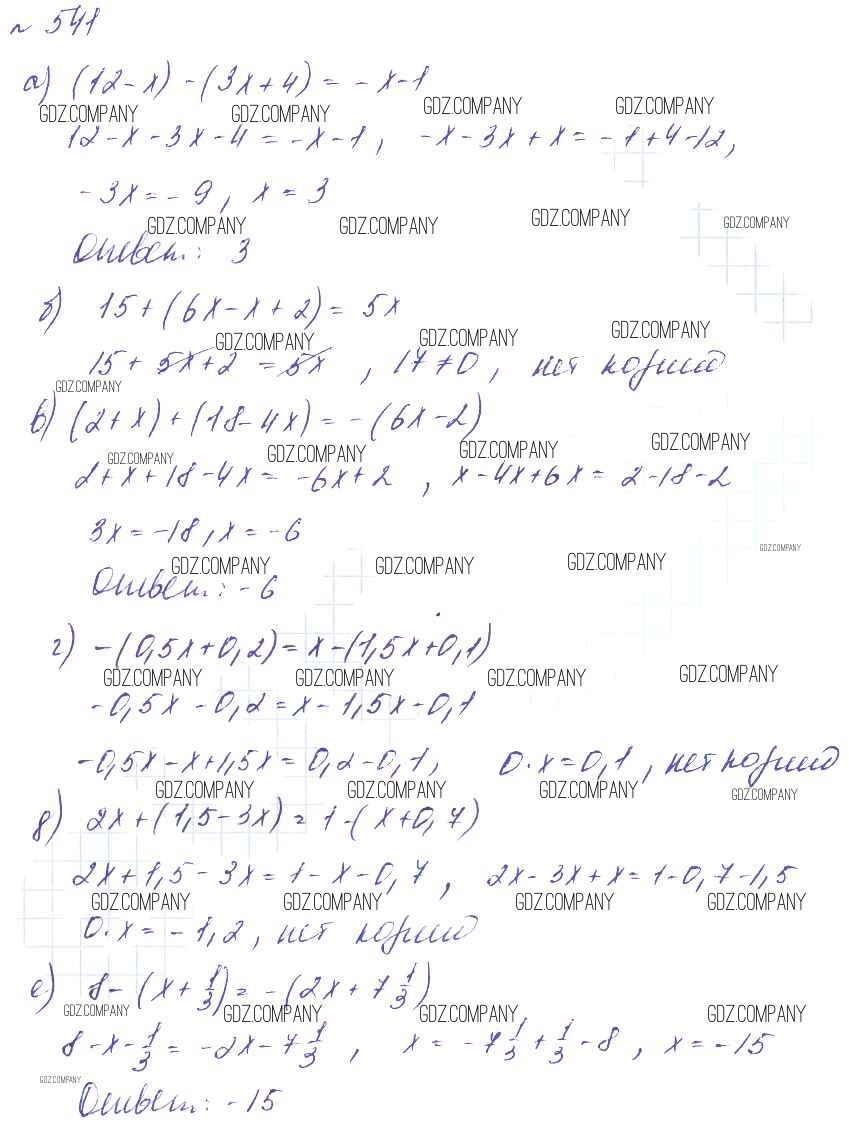 № 541
а) (12-x)-(3x+4)=-x-1
GDZ.COMPANY GDZ.COMPANY GDZ.COMPANY GDZ.COMPANY
12-x-3x-4=-x-1, -x-3x+x=-1+4-12,
-3x=-9, x=3
GDZ.COMPANY GDZ.COMPANY GDZ.COMPANY GDZ.COMPANY
Ответ: 3
б) 15+(6x-x+2)=5x
GDZ.COMPANY GDZ.COMPANY GDZ.COMPANY
15+5x+2=5x, 17≠0, нет корней
GDZ.COMPANY
в) (2+x)+(18-4x)=-(6x-2)
GDZ.COMPANY GDZ.COMPANY GDZ.COMPANY GDZ.COMPANY
2+x+18-4x=-6x+2, x-4x+6x=2-18-2
3x=-18, x=-6
GDZ.COMPANY GDZ.COMPANY GDZ.COMPANY GDZ.COMPANY
Ответ: -6
г) -(0,5x+0,2)=x-(1,5x+0,1)
GDZ.COMPANY GDZ.COMPANY GDZ.COMPANY GDZ.COMPANY
-0,5x-0,2=x-1,5x-0,1
-0,5x-x+1,5x=0,2-0,1, 0·x=0,1, нет корней
GDZ.COMPANY GDZ.COMPANY GDZ.COMPANY GDZ.COMPANY
д) 2x+(1,5-3x)=1-(x+0,7)
2x+1,5-3x=1-x-0,7, 2x-3x+x=1-0,7-1,5
GDZ.COMPANY GDZ.COMPANY GDZ.COMPANY GDZ.COMPANY
0·x=-1,2, нет корней
е) 8-(x+1/3)=-(2x+7 1/3)
GDZ.COMPANY GDZ.COMPANY GDZ.COMPANY GDZ.COMPANY
8-x-1/3=-2x-7 1/3, x=-7 1/3+1/3-8, x=-15
GDZ.COMPANY
Ответ: -15